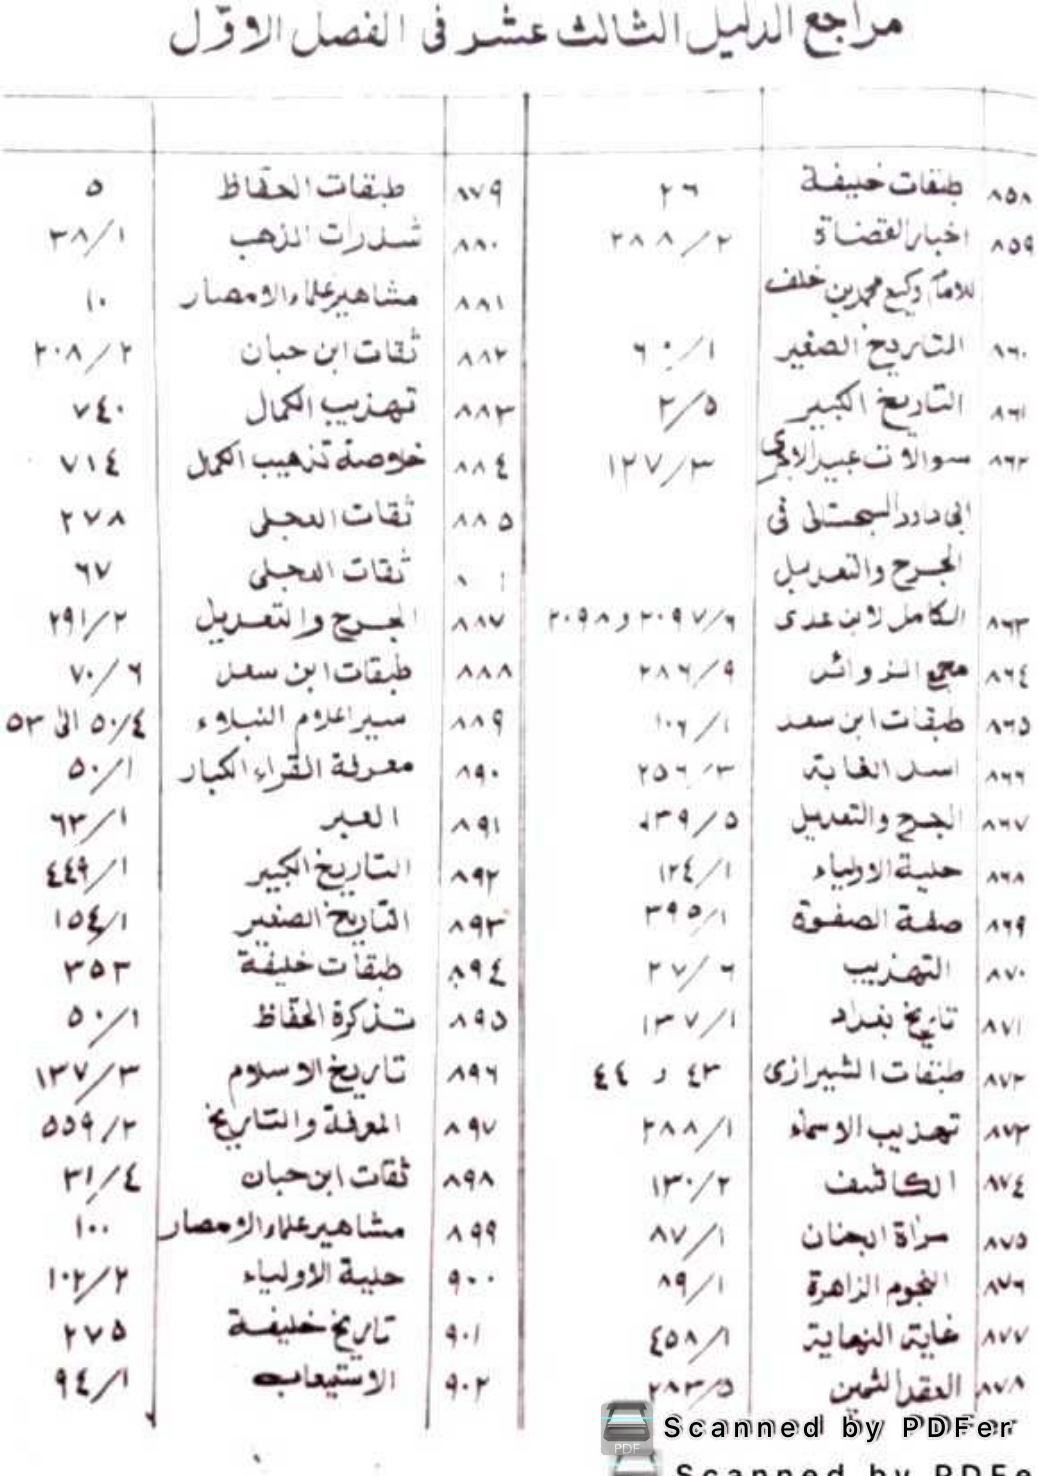 مراجع الدليل الثالث عشر فى الفصل الاوّل
٨٥٨ طبقات خليفة ٢٦
٨٥٩ اخبار القضاة ٢/٢٨٨
للامام وكيع محمد بن خلف
٨٦٠ التاريخ الصغير ١/٦٠
٨٦١ التاريخ الكبير ٢/٥
٨٦٢ سوالات عبيد الاجرى ٣/١٢٧
ابى داود السجستانى فى
الجرح والتعديل
٨٦٣ الكامل لابن عدى ٦/٢٠٩٧ و ٢٠٩٨
٨٦٤ مجمع الزوائد ٩/٢٨٦
٨٦٥ طبقات ابن سعد ١/١٠٦
٨٦٦ اسد الغابة ٣/٢٥٦
٨٦٧ الجرح والتعديل ٥/١٣٩
٨٦٨ حلية الاولياء ١/١٢٤
٨٦٩ صفة الصفوة ١/٣٩٥
٨٧٠ التهذيب ٦/٢٧
٨٧١ تاريخ بغداد ١/١٣٧
٨٧٢ طبقات الشيرازى ٤٣ و ٤٤
٨٧٣ تهذيب الاسماء ١/٢٨٨
٨٧٤ الكاشف ٢/١٣٠
٨٧٥ مراة الجنان ١/٨٧
٨٧٦ النجوم الزاهرة ١/٨٩
٨٧٧ غاية النهاية ١/٤٥٨
٨٧٨ العقد الثمين ٥/٢٨٣
٨٧٩ طبقات الحفاظ ٥
٨٨٠ شذرات الذهب ١/٣٨
٨٨١ مشاهير علماء الامصار ١٠
٨٨٢ ثقات ابن حبان ٢/٢٠٨
٨٨٣ تهذيب الكمال ٧٤٠
٨٨٤ خلاصة تذهيب الكمال ٧١٤
٨٨٥ ثقات العجلى ٢٧٨
ثقات العجلى ٦٧
٨٨٧ الجرح والتعديل ٢/٢٩١
٨٨٨ طبقات ابن سعد ٦/٧٠
٨٨٩ سير اعلام النبلاء ٤/٥٠ الى ٥٣
٨٩٠ معرفة القراء الكبار ١/٥٠
٨٩١ العبر ١/٦٣
٨٩٢ التاريخ الكبير ١/٤٤٩
٨٩٣ التاريخ الصغير ١/١٥٤
٨٩٤ طبقات خليفة ٣٥٣
٨٩٥ تذكرة الحفاظ ١/٥٠
٨٩٦ تاريخ الاسلام ٣/١٣٧
٨٩٧ المعرفة والتاريخ ٢/٥٥٩
٨٩٨ ثقات ابن حبان ٤/٣١
٨٩٩ مشاهير علماء الامصار ١٠٠
٩٠٠ حلية الاولياء ٢/١٠٢
٩٠١ تاريخ خليفة ٢٧٥
٩٠٢ الاستيعاب ١/٩٤
Scanned by PDFer
PDF
Scanned by PDFe